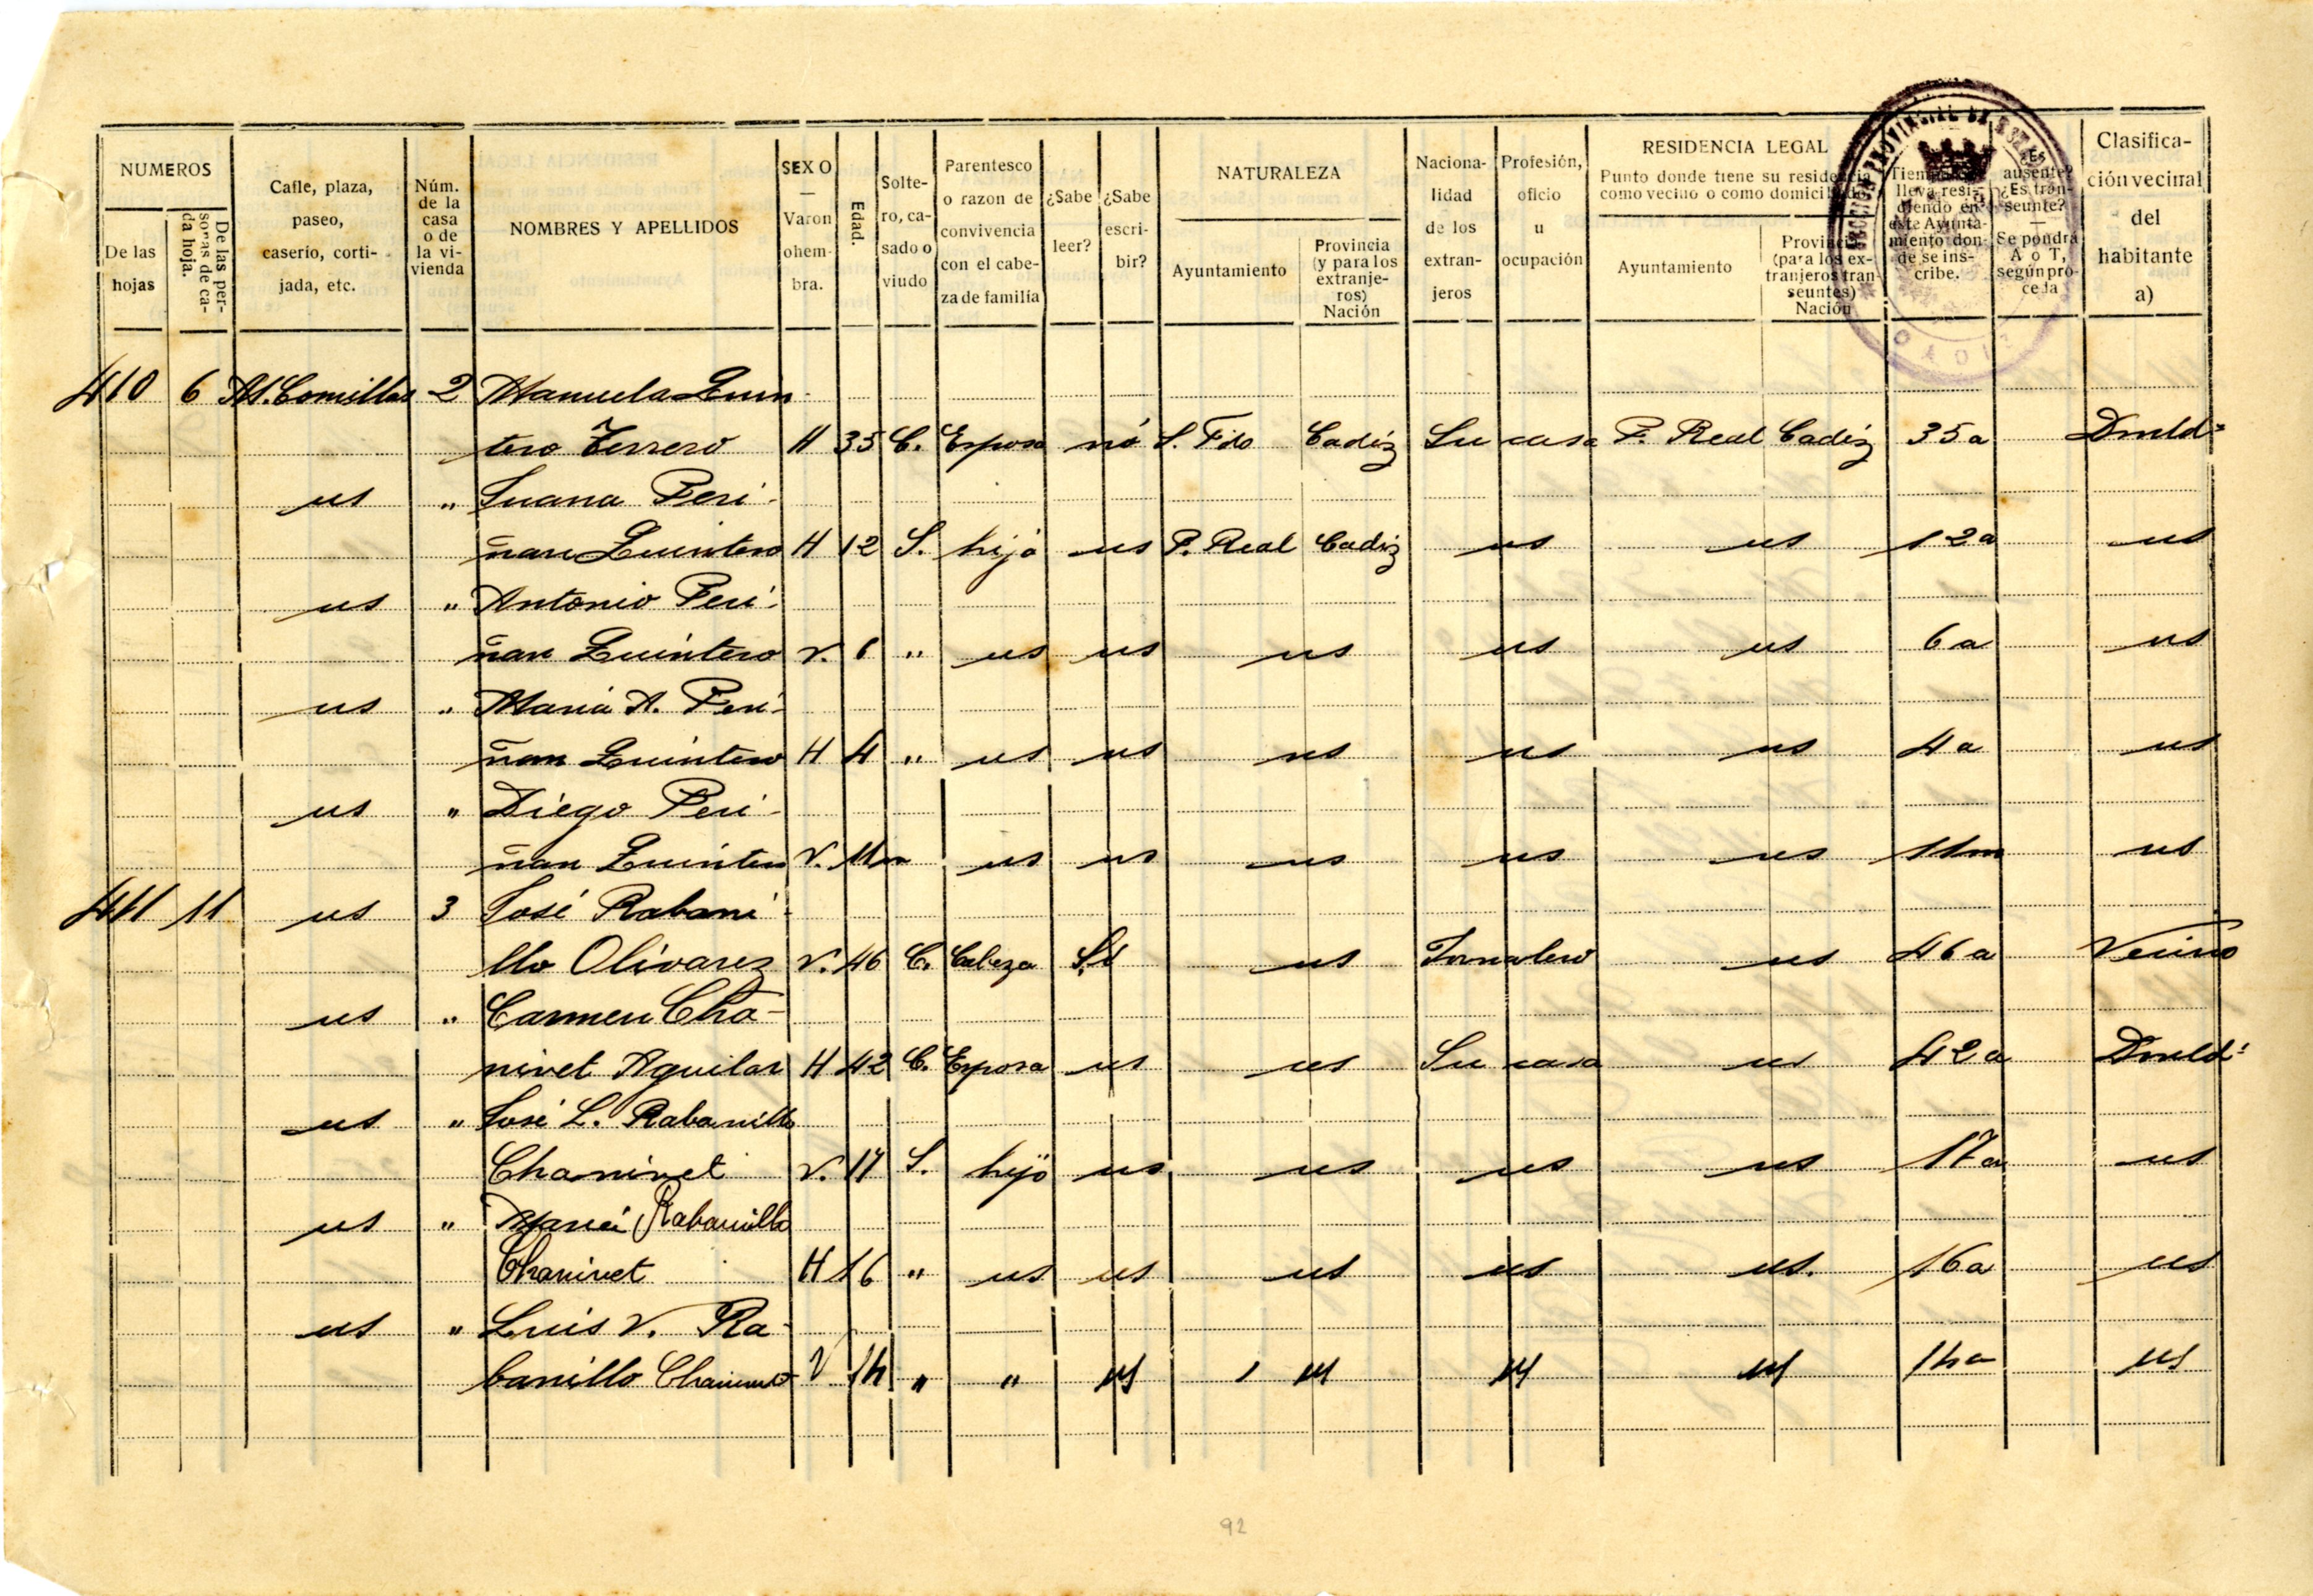 NUMEROS
De las hojas
De las personas de cada hoja.
Calle, plaza, paseo, caserío, cortijada, etc.
Núm. de la casa o de la vivienda
NOMBRES Y APELLIDOS
SEXO — Varon o hembra.
Edad.
Soltero, casado o viudo
Parentesco o razon de convivencia con el cabeza de familia
¿Sabe leer?
¿Sabe escribir?
NATURALEZA
Ayuntamiento
Provincia (y para los extranjeros) Nación
Nacionalidad de los extranjeros
Profesión, oficio u ocupación
RESIDENCIA LEGAL
Punto donde tiene su residencia como vecino o como domicil
Ayuntamiento
Provincia (para los extranjeros transeuntes) Nación
Tiem lleva residiendo en este Ayuntamiento donde se inscribe.
ES ausente? ¿Es transeunte? — Se pondrá A o T, según proceda
Clasificación vecinal del habitante a)
CADIZ
410 6 M. Comillas 2 Manuela Quin
tero Terrero H 35 C. Esposa nó S. Fdo Cadiz Su casa P. Real Cadiz 35a Domld=
us " Juana Peri-
ñan Quintero H 12 S. hija us P. Real Cadiz us us 12a us
us " Antonio Peri-
ñan Quintero V. 6 " us us us us us 6a us
us " Maria A. Peri-
ñan Quintero H 4 " us us us us us 4a us
us " Diego Peri-
ñan Quintero V. 11m us us us us us 11m us
411 11 us 3 José Rabani-
llo Olivarez V. 46 C. Cabeza Si us Jornalero us 46a Vecino
us " Carmen Cha-
nivet Aguilar H 42 C. Esposa us us Su casa us 42a Domld=
us " José L. Rabanillo
Chanivet V. 17 S. hijo us us us us 17a us
us " Maria Rabanillo
Chanivet H 16 " us us us us us. 16a us
us " Luis V. Ra-
banillo Chanivet V 14 " " us us us us 14a us
92